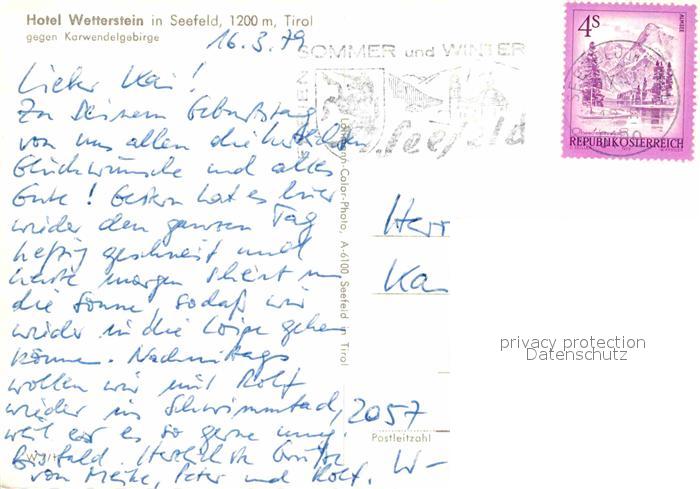 Hotel Wetterstein in Seefeld, 1200 m, Tirol
gegen Karwendelgebirge
16.3.79
SOMMER und WINTER
Seefeld
4S
ALMSEE
REPUBLIK ÖSTERREICH
Lieber Kai!
Zu Deinem Geburtstag
von uns allen die herzlichsten
Glückwünsche und alles
Gute! Gestern hat es hier
wieder den ganzen Tag
heftig geschneit und
heute morgen scheint
die Sonne, sodaß wir
wieder in die Loipe gehen
können. Nachmittags
wollen wir mit Rolf
wieder ins Schwimmbad,
weil er es so gerne mag.
Bis bald. Herzlichste Grüße
von Meike, Peter und Rolf.
-Color-Photo, A-6100 Seefeld in Tirol
Herr
Kai
2057
Postleitzahl
W-
privacy protection
Datenschutz